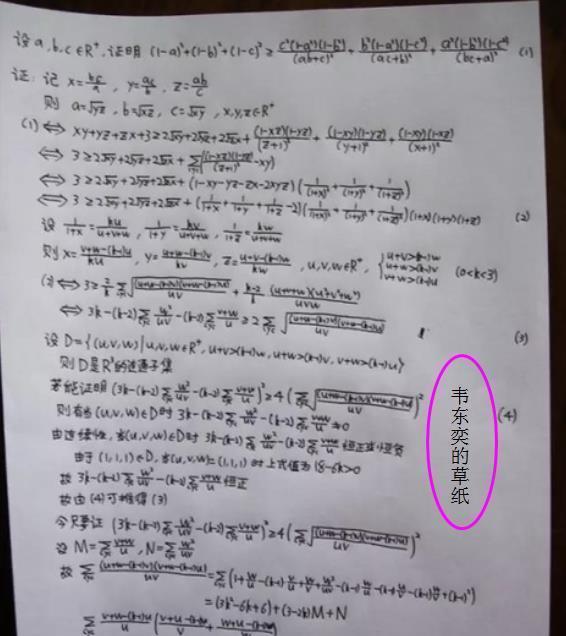 设 a,b,c∈R⁺, 证明 (1-a)²+(1-b)²+(1-c)² ≥ c²(1-a²)(1-b²)/(ab+c)² + b²(1-a²)(1-c²)/(ac+b)² + a²(1-b²)(1-c²)/(bc+a)² (1)
证: 记 x=bc/a, y=ac/b, z=ab/c
则 a=√yz, b=√xz, c=√xy, x,y,z∈R⁺
(1) ⇔ xy+yz+zx+3≥2√xy+2√yz+2√zx + (1-xz)(1-yz)/(z+1)² + (1-xy)(1-yz)/(y+1)² + (1-xy)(1-xz)/(x+1)²
⇔ 3≥2√xy+2√yz+2√zx+∑((1-xz)(1-yz)/(z+1)² -xy)
⇔ 3≥2√xy+2√yz+2√zx+(1-xy-yz-zx-2xyz)(1/(1+x)²+1/(1+y)²+1/(1+z)²)
⇔ 3≥2√xy+2√yz+2√zx+(1/(1+x)+1/(1+y)+1/(1+z)-2)(1/(1+x)²+1/(1+y)²+1/(1+z)²)(1+x)(1+y)(1+z) (2)
设 1/(1+x)=ku/(u+v+w), 1/(1+y)=kv/(u+v+w), 1/(1+z)=kw/(u+v+w)
则 x=(v+w-(k-1)u)/ku, y=(u+w-(k-1)v)/kv, z=(u+v-(k-1)w)/kw, u,v,w∈R⁺, {u+v>(k-1)w u+w>(k-1)v v+w>(k-1)u (0<k<3)
(2) ⇔ 3≥2/k ∑√((u+w-(k-1)v)(v+w-(k-1)u)/uv) + (k-2)/k (u+v+w)(u²+v²+w²)/uvw
⇔ 3k-(k-2)∑w²/uv-(k-2)∑(v+w)/u≥2∑√((u+w-(k-1)v)(v+w-(k-1)u)/uv) (3)
设 D={(u,v,w)|u,v,w∈R⁺, u+v>(k-1)w, u+w>(k-1)v, v+w>(k-1)u}
则 D是R³的连通子集
若能证明 (3k-(k-2)∑w²/uv-(k-2)∑(v+w)/u)²≥4(∑√((u+w-(k-1)v)(v+w-(k-1)u)/uv))² (4)
则有当(u,v,w)∈D时 3k-(k-2)∑w²/uv-(k-2)∑(v+w)/u≠0
由连续性,当(u,v,w)∈D时 3k-(k-2)∑w²/uv-(k-2)∑(v+w)/u恒正或恒负
由于(1,1,1)∈D,当(u,v,w)=(1,1,1)时上式值为18-6k>0
故 3k-(k-2)∑w²/uv-(k-2)∑(v+w)/u恒正
故由(4)可推得(3)
今只要证 (3k-(k-2)∑w²/uv-(k-2)∑(v+w)/u)²≥4(∑√((u+w-(k-1)v)(v+w-(k-1)u)/uv))²
设 M=∑(v+w)/u, N=∑w²/uv
=(3k²-6k+6)+(3-2k)M+N
韦东奕的草纸